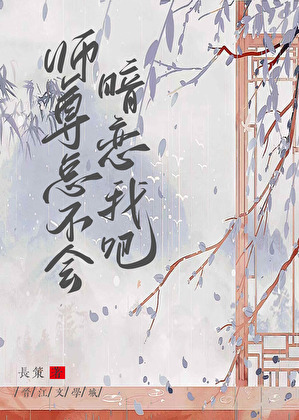 师尊总不会
暗恋我吧
長策 著
/晋/江/文/學/城/